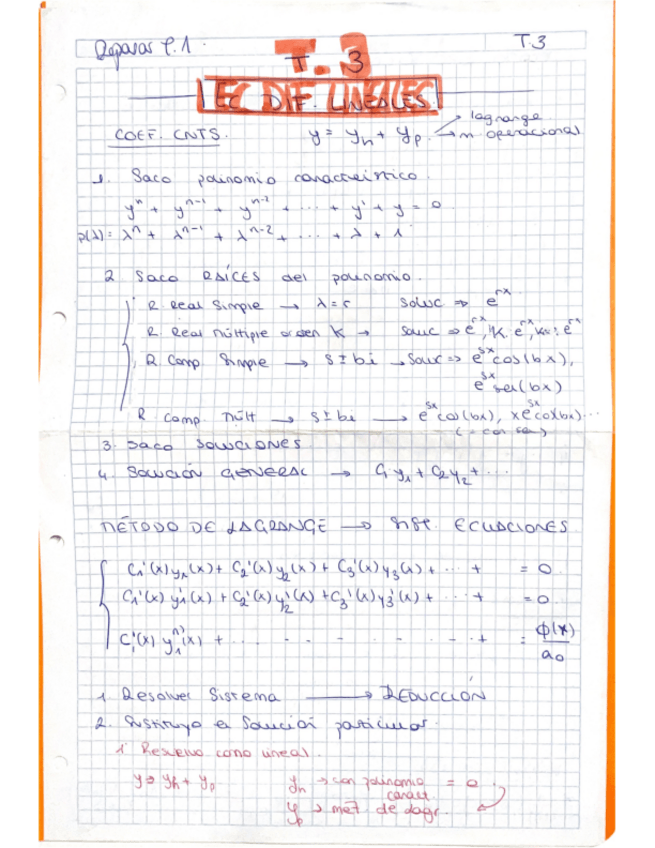 Repasar T.1.
T.3
T. 3
EC DIF. LINEALES.
COEF. CNTS. y = yh + yp → lagrange
→ m. operacional
1. Saco polinomio característico.
yⁿ + yⁿ⁻¹ + yⁿ⁻² + ... + y' + y = 0
p(λ) = λⁿ + λⁿ⁻¹ + λⁿ⁻² + ... + λ + 1
2 Saco RAÍCES del polinomio.
R. Real Simple → λ = r Soluc ⇒ e^rx
R. Real múltiple orden K →
R Comp Simple → s ± bi → Soluc ⇒ e^sx cos(bx),
e^sx sen(bx)
R Comp. Múlt → s ± bi → e^sx cos(bx), xe^sx cos(bx)...
(= con sen)
3. Saco soluciones.
4. Solución general → C₁y₁ + C₂y₂ + ...
MÉTODO DE LAGRANGE → Sist. ECUACIONES
C₁'(x)y₁(x) + C₂'(x)y₂(x) + C₃'(x)y₃(x) + ... + = 0
C₁'(x)y₁'(x) + C₂'(x)y₂'(x) + C₃'(x)y₃'(x) + ... + = 0
C₁'(x) y₁ⁿ⁾(x) + ... - - - - - - + = ϕ(x)/a₀
1. Resolver Sistema → REDUCCIÓN
2. Sustituyo en Solución particular.
1. Resuelvo como lineal.
y → yh + yp yh → con polinomio = 0
caract.
yp → mét. de Lagr.